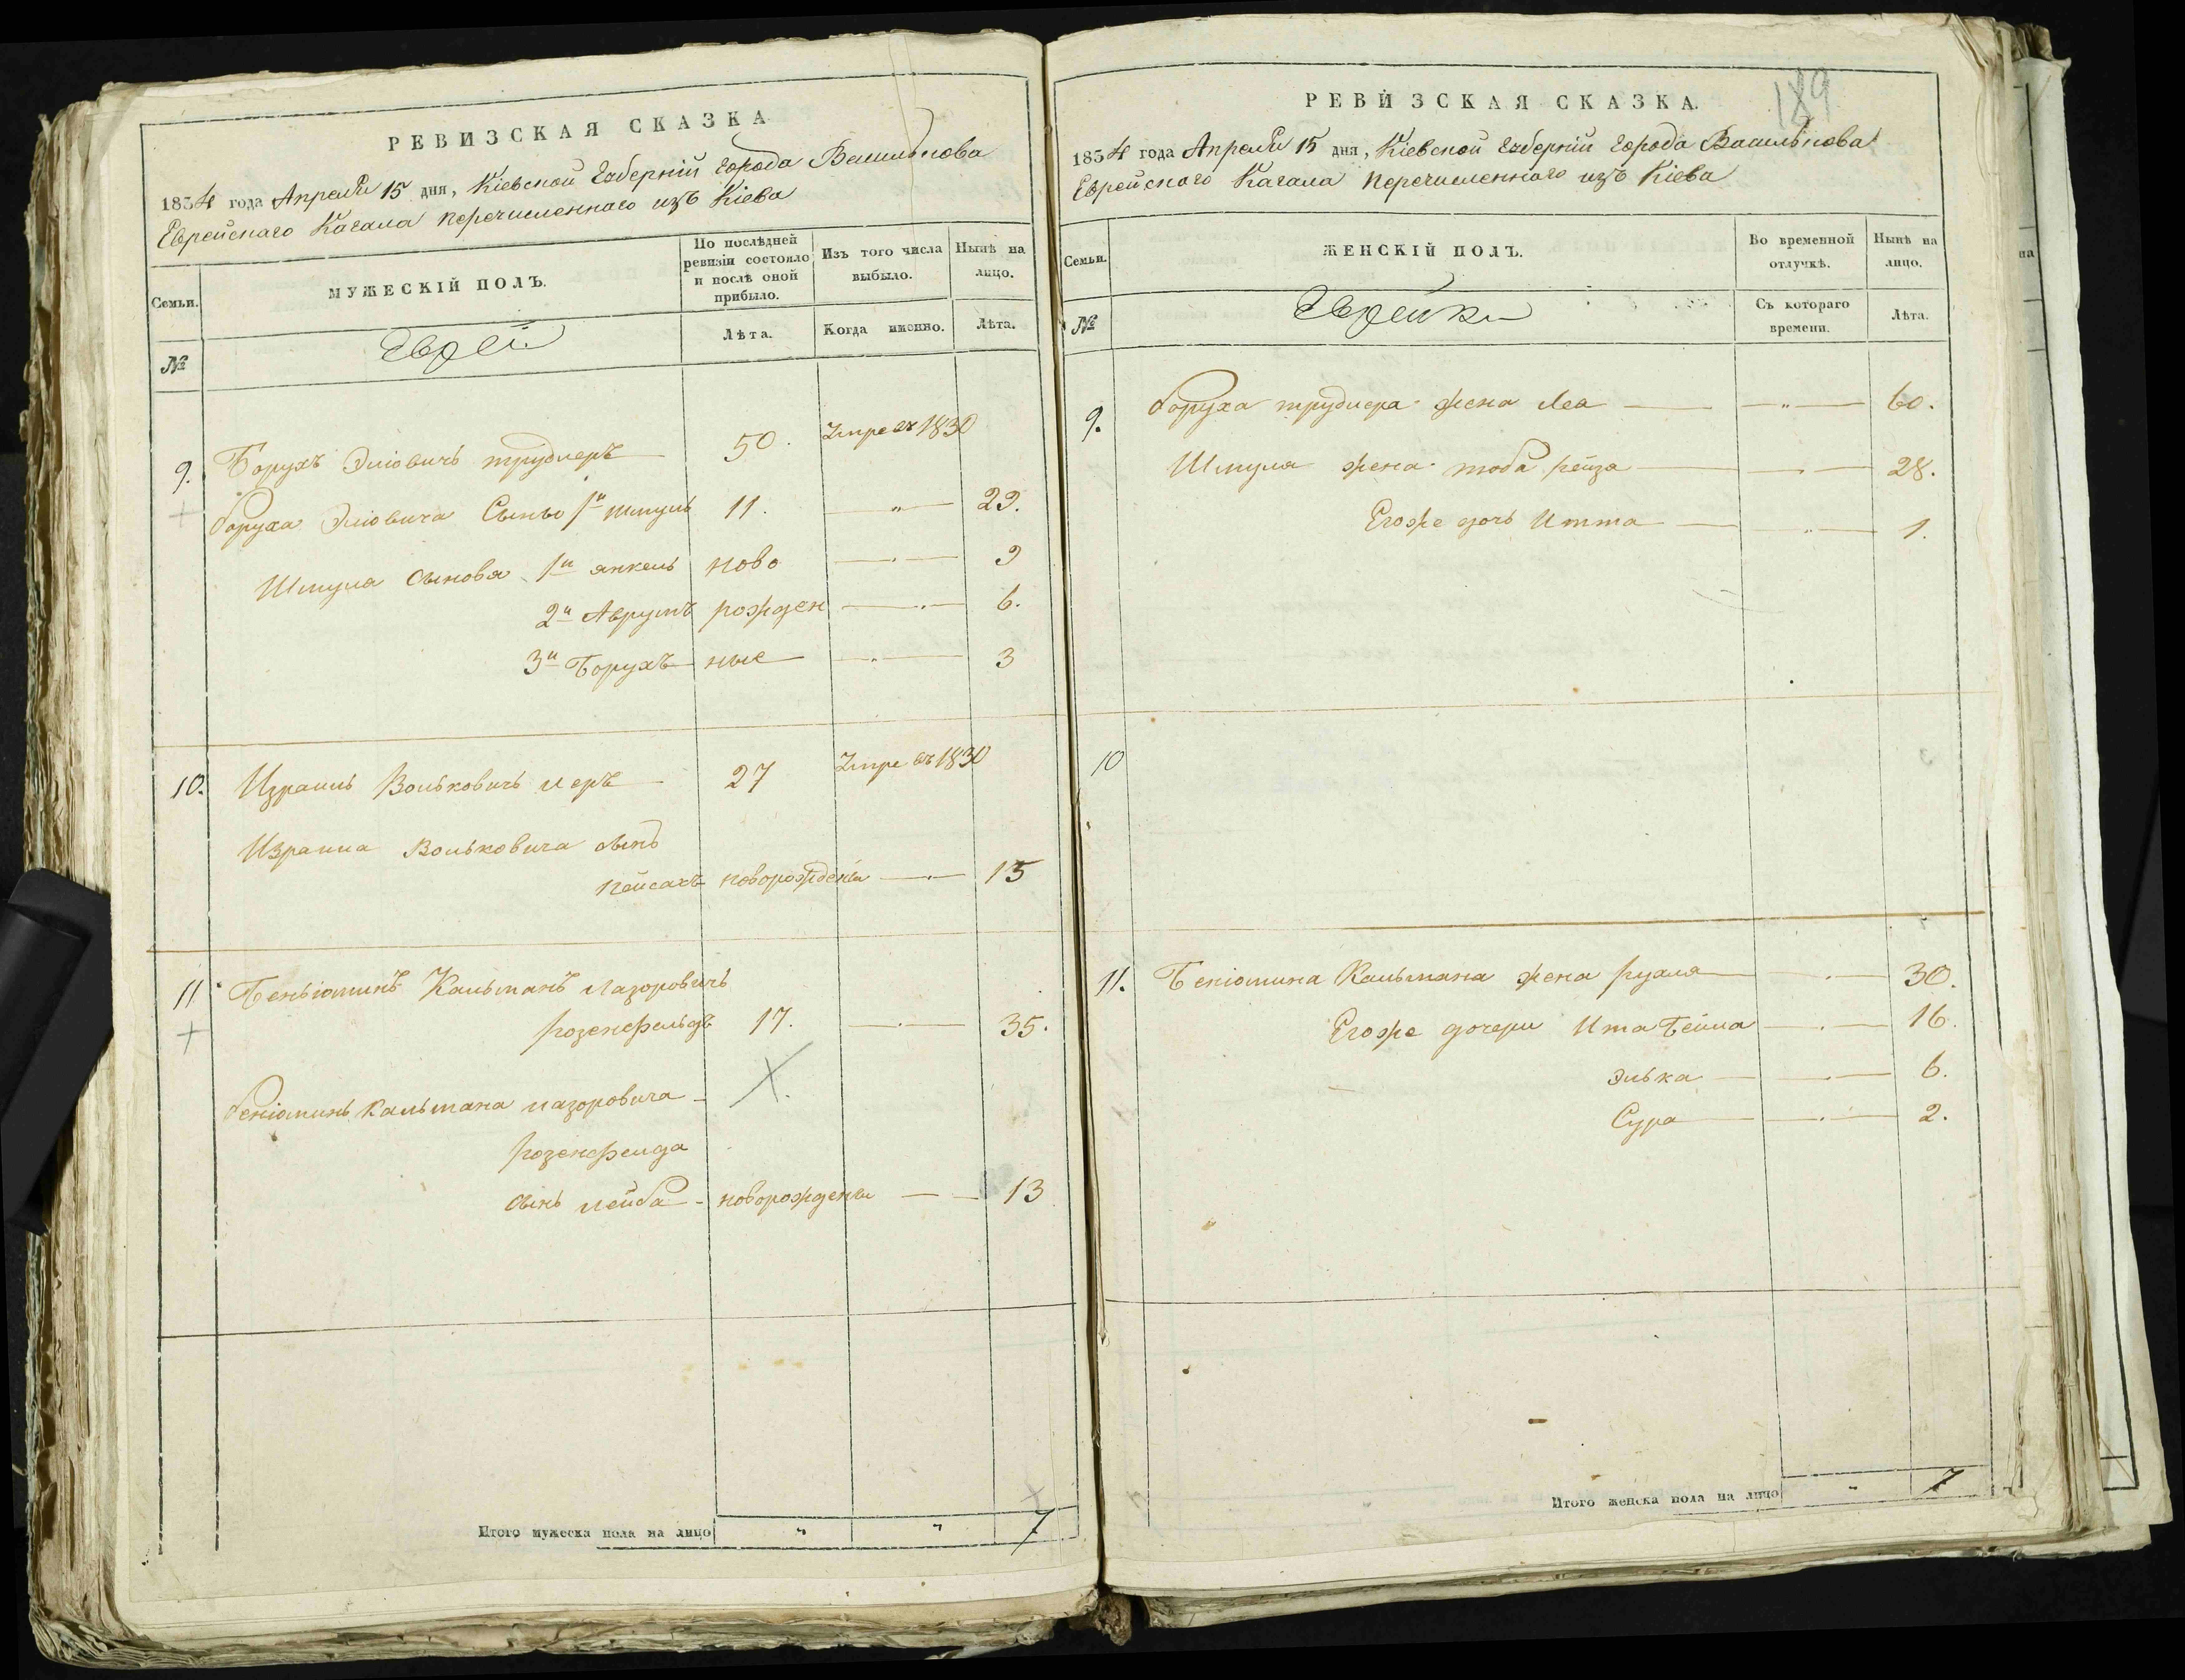 РЕВИЗСКАЯ СКАЗКА
1834 года Апреля 15 дня, Кіевской Губерніи Города Василькова
Еврейскаго Кагала перечисленнаго изъ Кіева
Семьи.
МУЖЕСКІЙ ПОЛЪ.
По послѣдней ревизіи состояло и послѣ оной прибыло.
Изъ того числа выбыло.
Нынѣ на лицо.
№
Евреи
Лѣта.
Когда именно.
Лѣта.
9. Борухъ Эліовичь трудлеръ 50. Умре въ 1830
Боруха Эліовича Сынъ 1й Шмуль 11. — „ — 29.
Шмуля сыновя 1й янкель ново — „ — 9
2й Аврумъ рожден — „ — 6.
3й Борухъ ные — „ — 3
10. Израиль Вольковичь леръ 27 Умре въ 1830
Израиля Вольковича сынъ
пейсахъ новорождены — „ — 15
11 Беньіоминъ Кальманъ Лазоровичь
розенфельдъ 17. — „ — 35.
беніоминъ Кальмана лазоровича
розенфелда
сынь лейба новорождены — — 13
Итого мужеска пола на лицо „ „ 7
189
РЕВИЗСКАЯ СКАЗКА.
1834 года Апреля 15 дня, Кіевской Губерніи Города Василькова
Еврейскаго Кагала перечисленнаго изъ Кіева
Семьи.
ЖЕНСКІЙ ПОЛЪ.
Во временной отлучкѣ.
Нынѣ на лицо.
№
Еврейки
Съ котораго времени.
Лѣта.
9. боруха трудлера жена Леа — „ — 60.
Шмуля жена тоба рейза — „ — 28.
Егоже дочь Итта — „ — 1.
10
11. Беніомина Кальмана жена рухля — „ — 30.
Егоже дочери Ита Бейла — „ — 16.
Элька — „ — 6.
Сура — „ — 2.
Итого женска пола на лицо „ 7